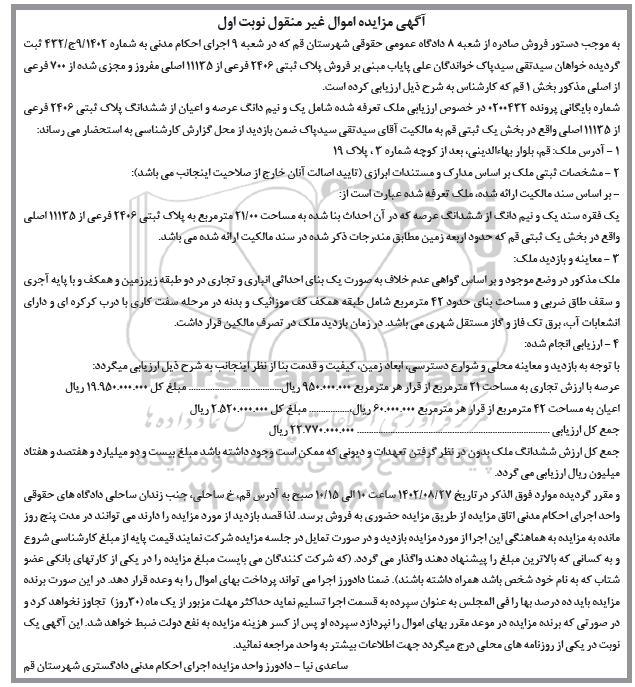 آگهی مزایده اموال غیر منقول نوبت اول
به موجب دستور فروش صادره از شعبه ۸ دادگاه عمومی حقوقی شهرستان قم که در شعبه ۹ اجرای احکام مدنی به شماره ۹/۱۴۰۲ج/۴۳۲ ثبت
گردیده خواهان سیدتقی سیدپاک خواندگان علی پایاب مبنی بر فروش پلاک ثبتی ۲۴۰۶ فرعی از ۱۱۱۳۵ اصلی مفروز و مجزی شده از ۷۰۰ فرعی
از اصلی مذکور بخش ۱ قم که کارشناس به شرح ذیل ارزیابی کرده است.
شماره بایگانی پرونده ۰۲۰۰۴۳۲ در خصوص ارزیابی ملک تعرفه شده شامل یک و نیم دانگ عرصه و اعیان از ششدانگ پلاک ثبتی ۲۴۰۶ فرعی
از ۱۱۱۳۵ اصلی واقع در بخش یک ثبتی قم به مالکیت آقای سیدتقی سیدپاک ضمن بازدید از محل گزارش کارشناسی به استحضار می رساند:
۱ - آدرس ملک: قم، بلوار بهاءالدینی، بعد از کوچه شماره ۳ ، پلاک ۱۹
۲ - مشخصات ثبتی ملک بر اساس مدارک و مستندات ابرازی (تایید اصالت آنان خارج از صلاحیت اینجانب می باشد):
- بر اساس سند مالکیت ارائه شده، ملک تعرفه شده عبارت است از:
یک فقره سند یک و نیم دانگ از ششدانگ عرصه که در آن احداث بنا شده به مساحت ۲۱/۰۰ مترمربع به پلاک ثبتی ۲۴۰۶ فرعی از ۱۱۱۳۵ اصلی
واقع در بخش یک ثبتی قم که حدود اربعه زمین مطابق مندرجات ذکر شده در سند مالکیت ارائه شده می باشد.
۳ - معاینه و بازدید ملک:
ملک مذکور در وضع موجود و بر اساس گواهی عدم خلاف به صورت یک بنای احداثی انباری و تجاری در دو طبقه زیرزمین و همکف و با پایه آجری
و سقف طاق ضربی و مساحت بنای حدود ۴۲ مترمربع شامل طبقه همکف کف موزائیک و بدنه در مرحله سفت کاری با درب کرکره ای و دارای
انشعابات آب، برق تک فاز و گاز مستقل شهری می باشد. در زمان بازدید ملک در تصرف مالکین قرار داشت.
۴ - ارزیابی انجام شده:
با توجه به بازدید و معاینه محلی و شوارع دسترسی، ابعاد زمین، کیفیت و قدمت بنا از نظر اینجانب به شرح ذیل ارزیابی میگردد:
عرصه با ارزش تجاری به مساحت ۲۱ مترمربع از قرار هر مترمربع ۹۵۰.۰۰۰.۰۰۰ ریال................ مبلغ کل ۱۹.۹۵۰.۰۰۰.۰۰۰ ریال
اعیان به مساحت ۴۲ مترمربع از قرار هر مترمربع ۶۰.۰۰۰.۰۰۰ ریال................ مبلغ کل ۲.۵۲۰.۰۰۰.۰۰۰ ریال
جمع کل ارزیابی ................................ ۲۲.۷۷۰.۰۰۰.۰۰۰ ریال
جمع کل ارزش ششدانگ ملک بدون در نظر گرفتن تعهدات و دیونی که ممکن است وجود داشته باشد مبلغ بیست و دو میلیارد و هفتصد و هفتاد
میلیون ریال ارزیابی می گردد.
و مقرر گردیده موارد فوق الذکر در تاریخ ۱۴۰۲/۰۸/۲۷ ساعت ۱۰ الی ۱۰/۱۵ صبح به آدرس قم، خ ساحلی، جنب زندان ساحلی دادگاه های حقوقی
واحد اجرای احکام مدنی اتاق مزایده از طریق مزایده حضوری به فروش برسد. لذا قصد بازدید از مورد مزایده را دارند می توانند در مدت پنج روز
مانده به مزایده به هماهنگی این اجرا از مورد مزایده بازدید و در صورت تمایل در جلسه مزایده شرکت نمایند قیمت پایه از مبلغ کارشناسی شروع
و به کسانی که بالاترین مبلغ را پیشنهاد دهند واگذار می گردد. (که شرکت کنندگان می بایست مبلغ مزایده را در یکی از کارتهای بانکی عضو
شتاب که به نام خود شخص باشد همراه داشته باشند). ضمنا دادورز اجرا می تواند پرداخت بهای اموال را به وعده قرار دهد. در این صورت برنده
مزایده باید ده درصد بها را فی المجلس به عنوان سپرده به قسمت اجرا تسلیم نماید حداکثر مهلت مزبور از یک ماه (۳۰روز) تجاوز نخواهد کرد و
در صورتی که برنده مزایده در موعد مقرر بهای اموال را نپردازد سپرده او پس از کسر هزینه مزایده به نفع دولت ضبط خواهد شد. این آگهی یک
نوبت در یکی از روزنامه های محلی درج میگردد جهت اطلاعات بیشتر به واحد مراجعه نمائید.
ساعدی نیا - دادورز واحد مزایده اجرای احکام مدنی دادگستری شهرستان قم
ParsNamadData
مرکز فرآوری اطلاعات پارس نماد داده ها
پایگاه اطلاع رسانی مناقصه و مزایده
۰۲۱-۸۸۳۴۹۶۷۰-۵